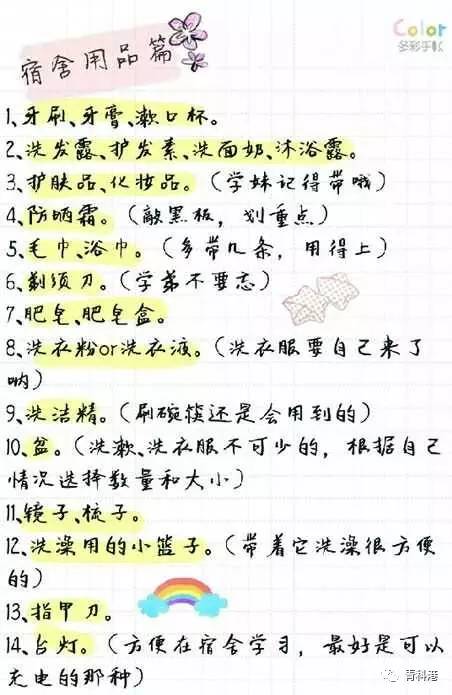 Color
多彩手帐
宿舍用品篇
1、牙刷、牙膏、漱口杯。
2、洗发露、护发素、洗面奶、沐浴露。
3、护肤品、化妆品。(学妹记得带哦)
4、防晒霜。(敲黑板,划重点)
5、毛巾、浴巾。(多带几条,用得上)
6、剃须刀。(学弟不要忘)
7、肥皂、肥皂盒。
8、洗衣粉or洗衣液。(洗衣服要自己来了
呐)
9、洗洁精。(刷碗筷还是会用到的)
10、盆。(洗漱、洗衣服不可少的,根据自己
情况选择数量和大小)
11、镜子、梳子。
12、洗澡用的小篮子。(带着它洗澡很方便
的)
13、指甲刀。
14、台灯。(方便在宿舍学习,最好是可以
充电的那种)
青科港